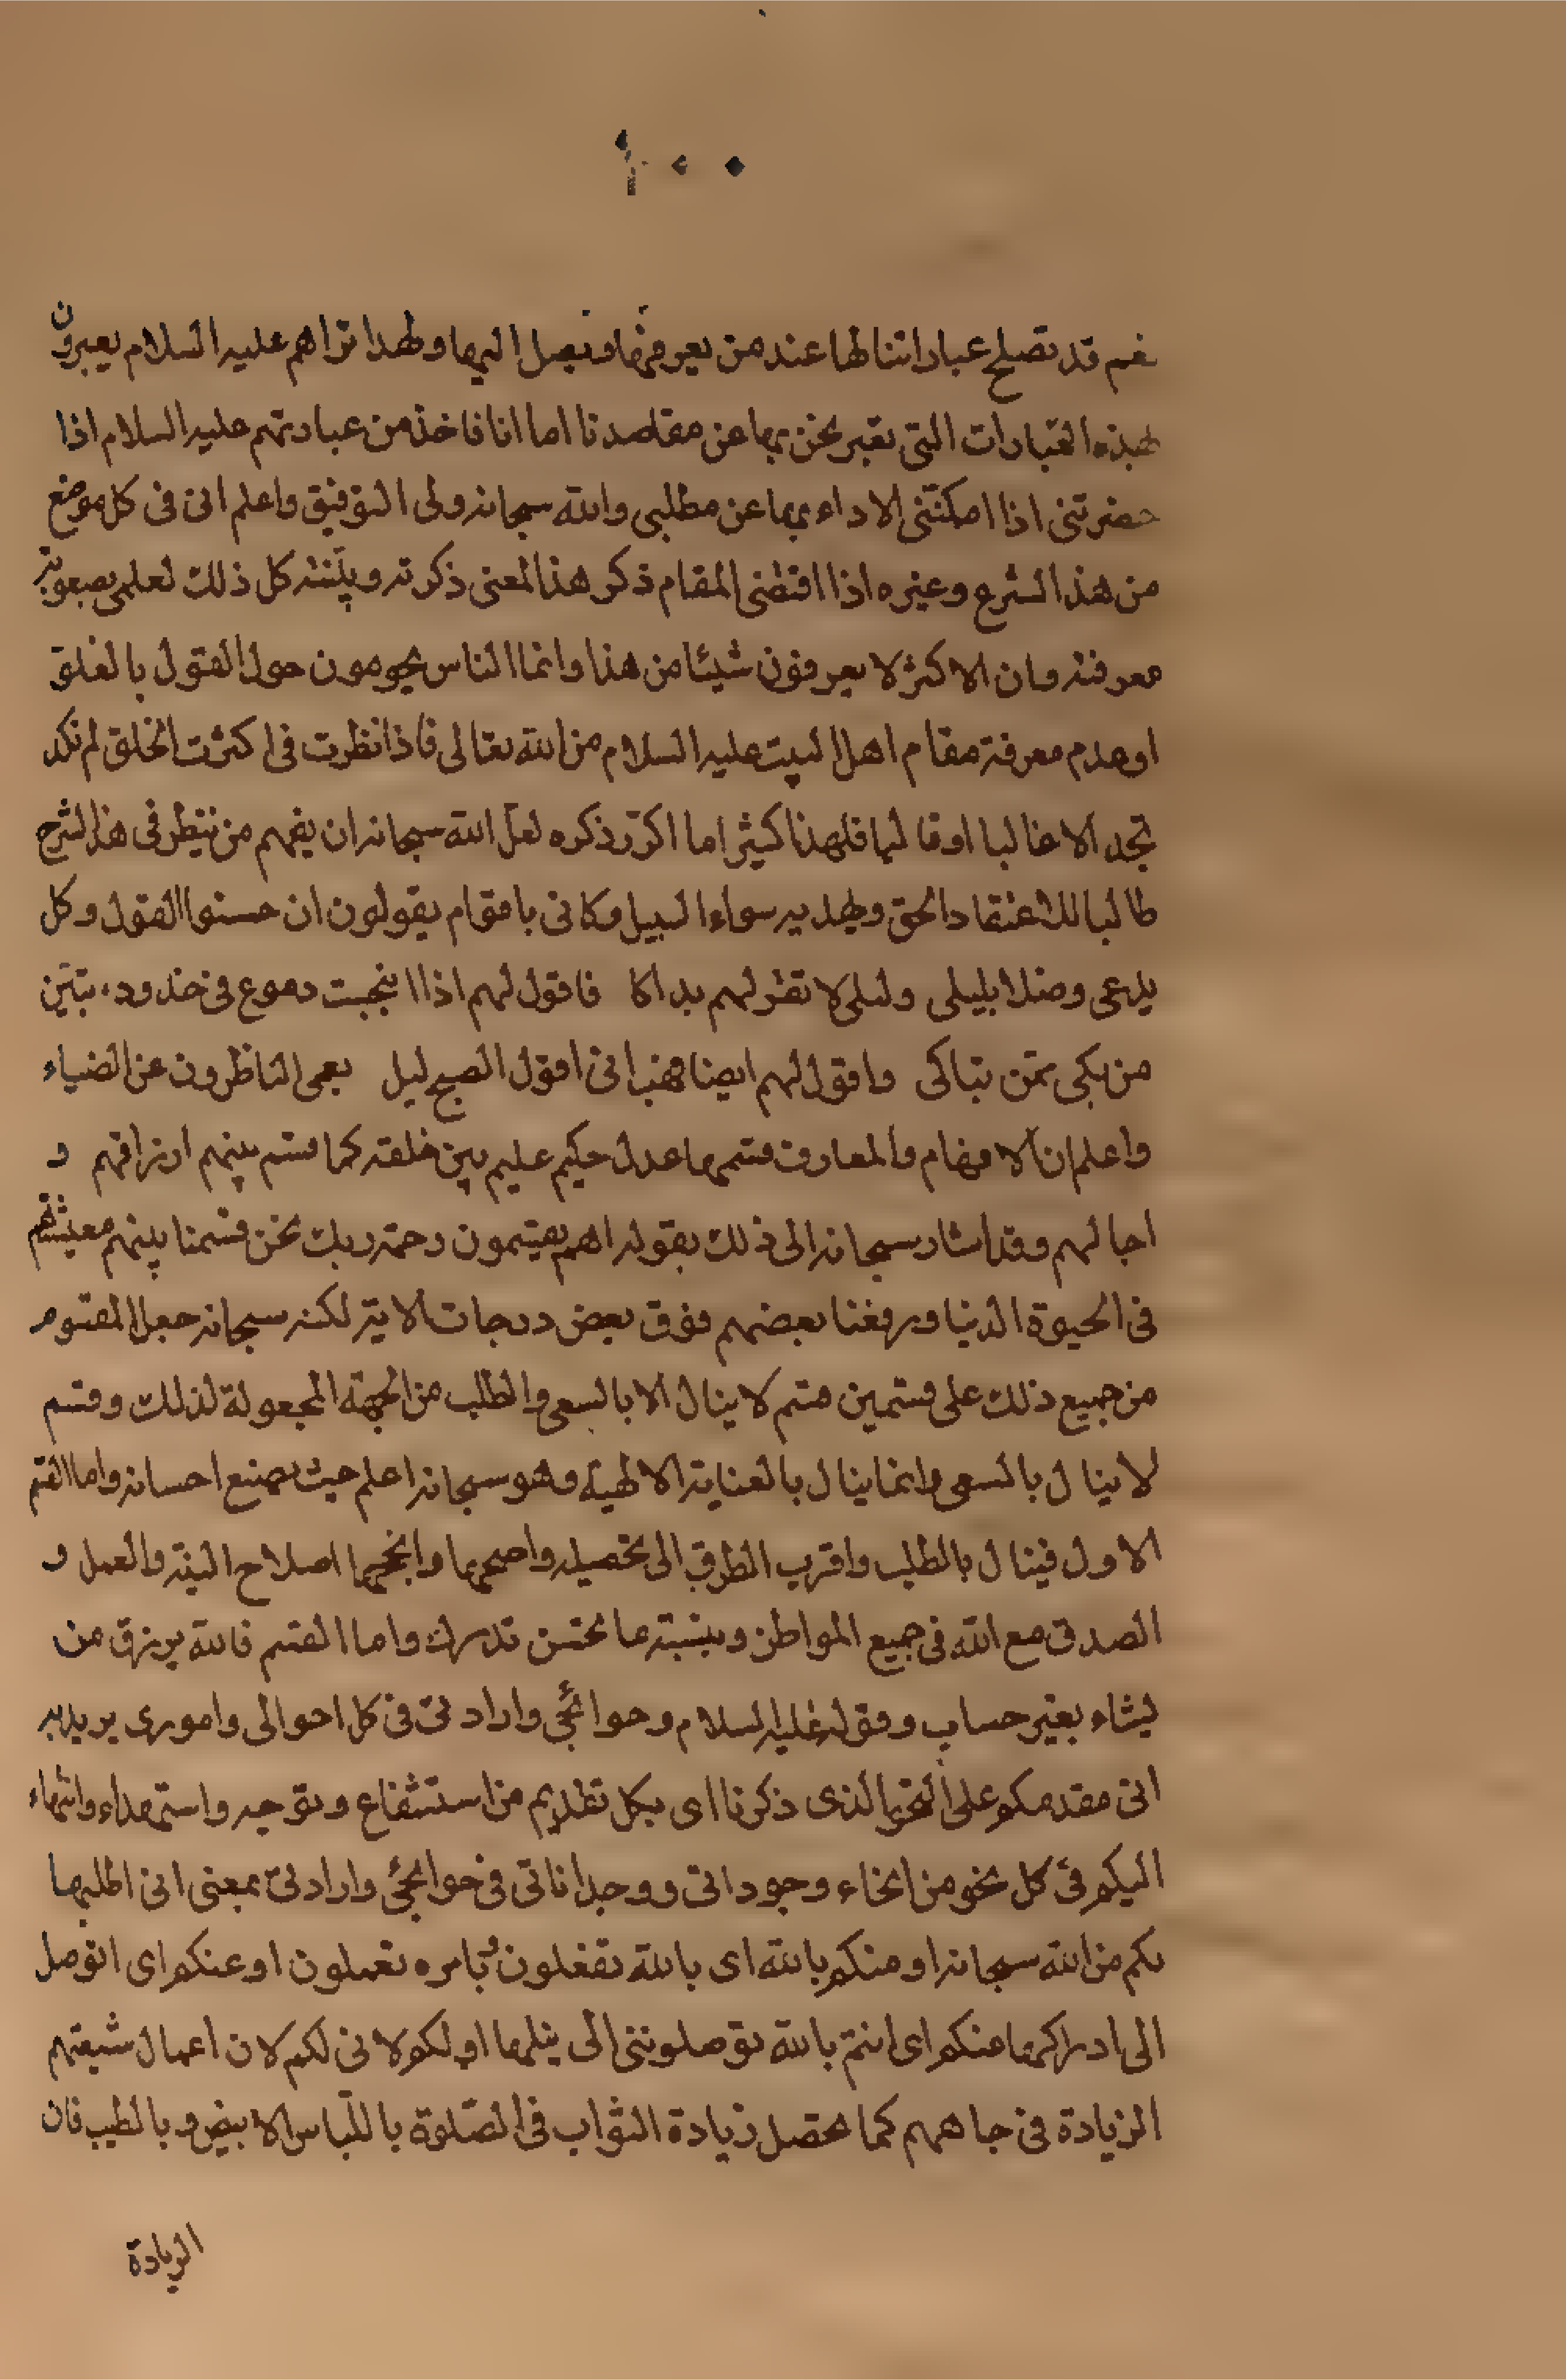 نعم قد تصلح عباراتنا لها عند من يعرفها ويصل اليها ولهذا تراهم عليه السلام يعبرون
بهذه العبارات التى نعبر نحن بها عن مقاصدنا اما انا فاخذ من عبارتهم عليه السلام اذا
حضرتنى اذا امكنتنى الاداء بها عن مطلبى والله سبحانه ولى التوفيق واعلم انى فى كل موضع
من هذا الشرح وغيره اذا اقتضى المقام ذكر هذا المعنى ذكرته وبيّنته كل ذلك لعلمى بصعوبة
معرفته وان الاكثر لا يعرفون شيئا من هذا وانما الناس يحومون حول القول بالغلوّ
او عدم معرفة مقام اهل البيت عليه السلام من الله تعالى فاذا نظرت فى اكثرت الخلق لم تكد
تجد الا غاليا او قاليا فلهذا كثيرا ما اكرّر ذكره لعلّ الله سبحانه ان يفهم من ينظر فى هذا الشرح
طالبا للاعتقاد الحق ويهديه سواء السبيل وكانى باقوام يقولون ان حسنوا القول وكل
يدعى وصلا بليلى وليلى لا تقر لهم بذاكا فاقول لهم اذا انبجست دموع فى خدود، تبيّن
من بكى ممّن تباكى واقول لهم ايضا هبنى اقول الصبح ليل يعمى الناظرون عن الضياء
واعلم ان الافهام والمعارف قسمها عدل حكيم عليم بين خلقه كما قسم بينهم ارزاقهم و
اجالهم وقد اشار سبحانه الى ذلك بقوله اهم يقسمون رحمة ربك نحن قسمنا بينهم معيشتهم
فى الحيوة الدنيا ورفعنا بعضهم فوق بعض درجات الاية لكنه سبحانه جعل المقسوم
من جميع ذلك على قسمين قسم لا ينال الا بالسعى والطلب من الجهة المجعولة لذلك وقسم
لا ينال بالسعى وانما ينال بالعناية الالهية وهو سبحانه اعلم حيث يصنع احسانه واما القسم
الاول فينال بالطلب واقرب الطرق الى تحصيله واصحها وانجحها اصلاح النية والعمل و
الصدق مع الله فى جميع المواطن وبنسبة ما تحسن تدرك واما القسم فالله يرزق من
يشاء بغير حساب وقوله عليه السلام وحوائجى وارادتى فى كل احوالى وامورى يريد به
انى مقدمكم على النحو الذى ذكرنا اى بكل تقديم من استشفاع وتوجه واستمداء وانتهاء
اليكم فى كل نحو من انحاء وجوداتى ووجداناتى فى حوائجى وارادتى بمعنى انى اطلبها
بكم من الله سبحانه او منكم بالله اى بالله تفعلون وبامره تعملون او عنكم اى اتوصل
الى ادراكها عنكم اى انتم بالله توصلوننى الى نيلها او لكم لانى لكم لان اعمال شيعتهم
الزيادة فى جاههم كما تحصل زيادة الثواب فى الصّلوة باللّباس الابيض وبالطيب فان
الزيادة